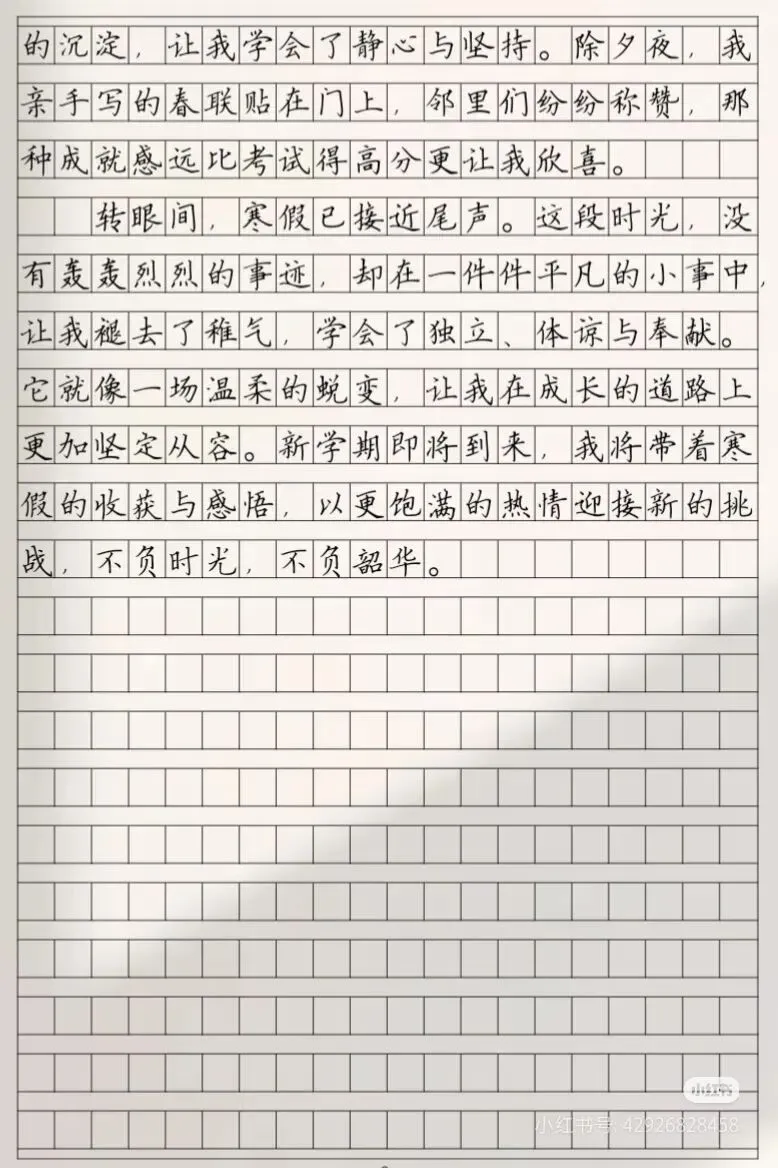 的沉淀，让我学会了静心与坚持。除夕夜，我
亲手写的春联贴在门上，邻里们纷纷称赞，那
种成就感远比考试得高分更让我欣喜。
转眼间，寒假已接近尾声。这段时光，没
有轰轰烈烈的事迹，却在一件件平凡的小事中，
让我褪去了稚气，学会了独立、体谅与奉献。
它就像一场温柔的蜕变，让我在成长的道路上
更加坚定从容。新学期即将到来，我将带着寒
假的收获与感悟，以更饱满的热情迎接新的挑
战，不负时光，不负韶华。
小红书
小红书号: 42926828458